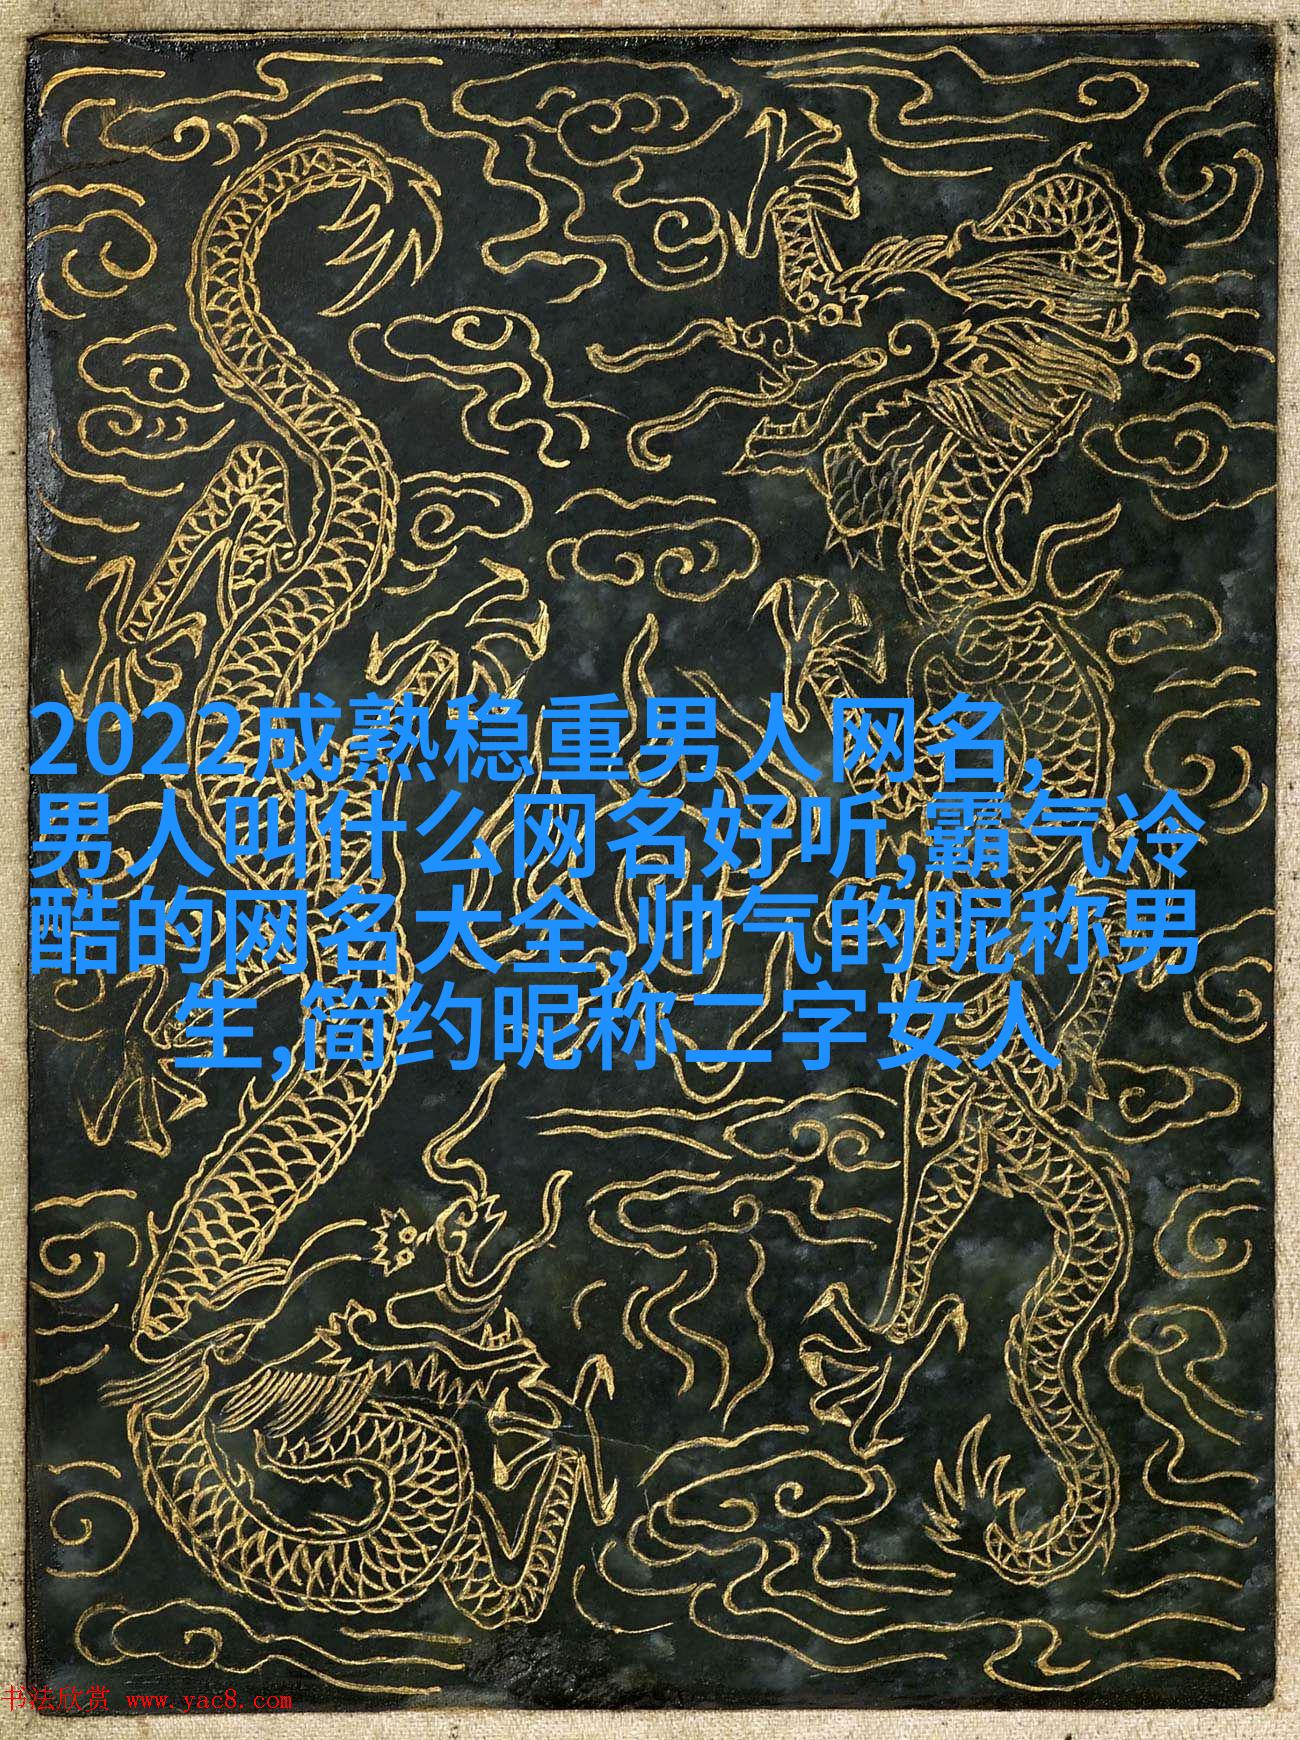 2022成熟稳重男人网名,
男人叫什么网名好听,霸气冷
酷的网名大全,帅气的昵称男
生,简约昵称二字女人
书法欣赏 www.yac8.com